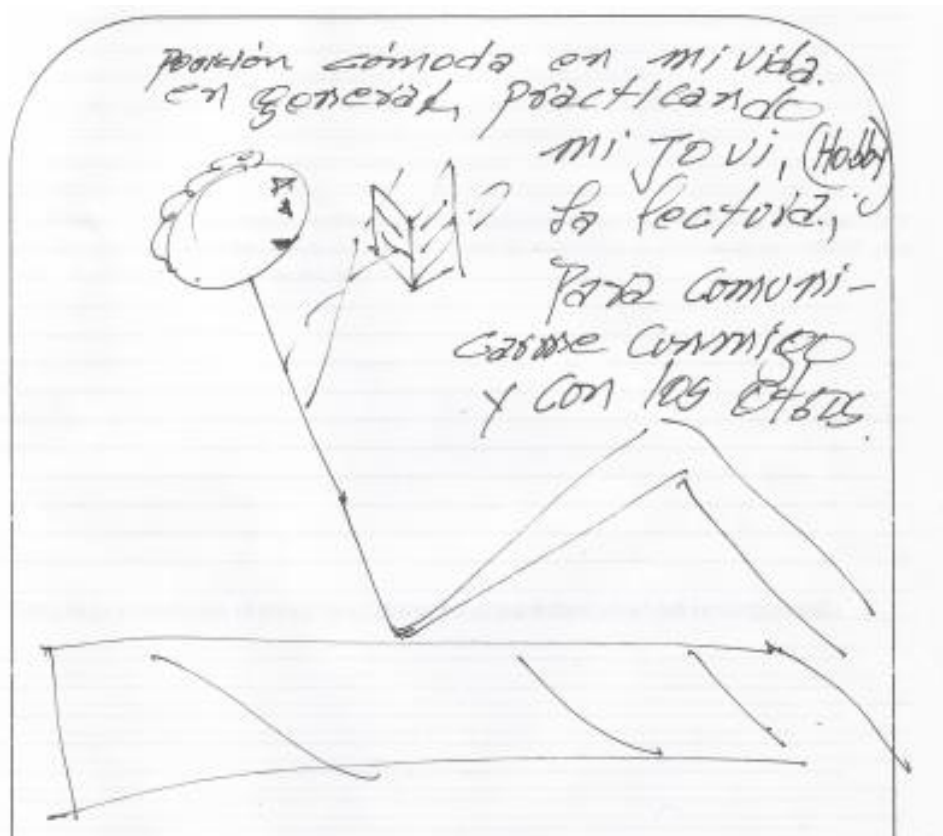 Posición cómoda en mi vida.
en general, practicando
mi Jovi, (Hobby)
La lectura,
Para comuni-
carme conmigo
y con los otros.